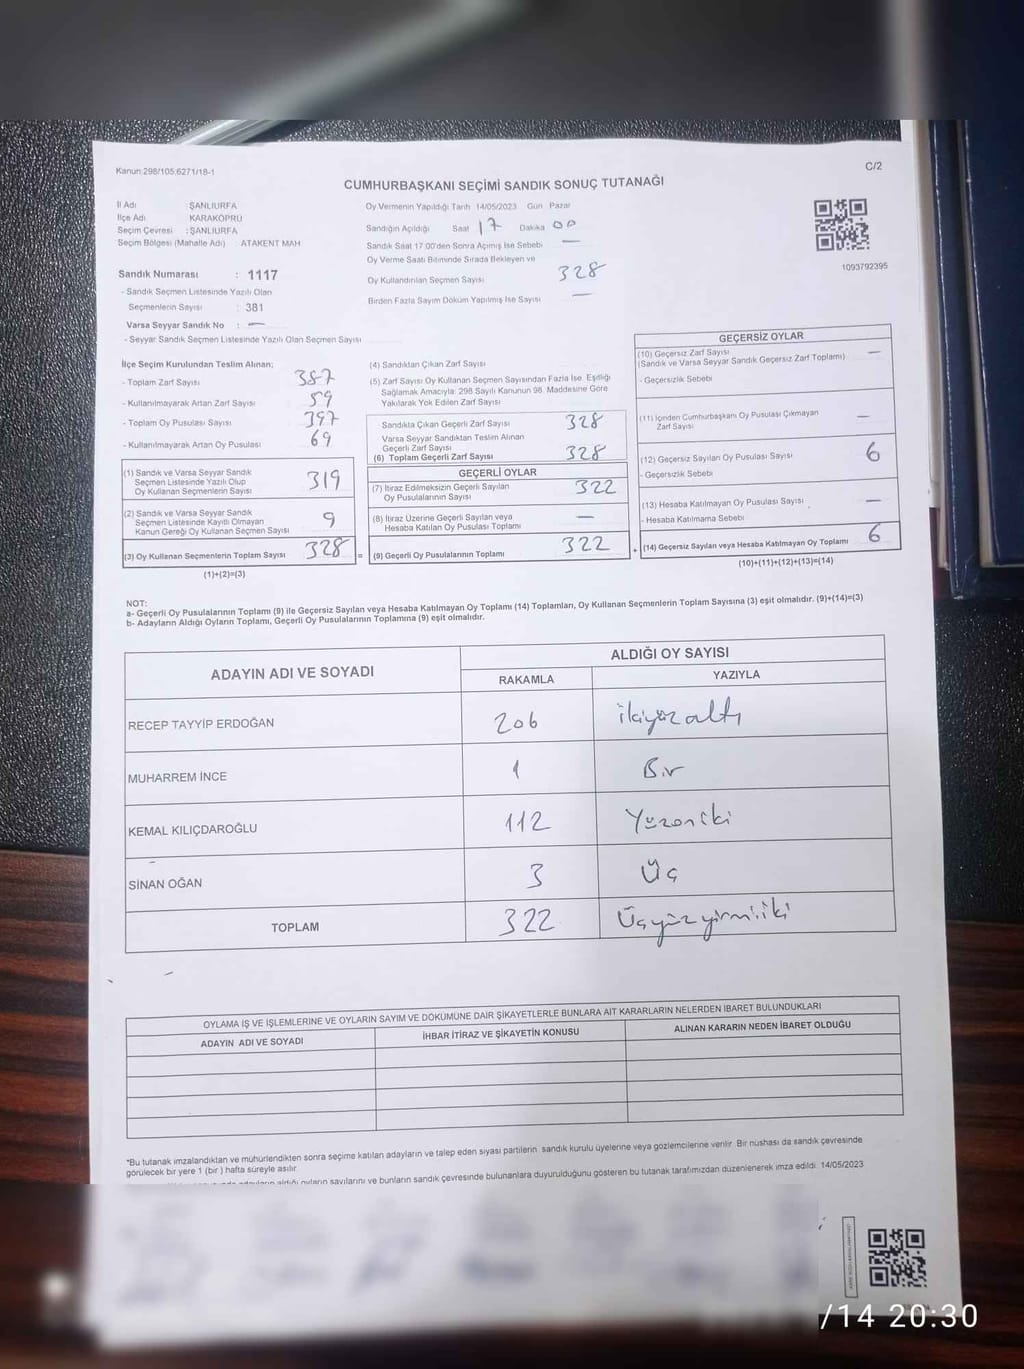 Kanun:298/105,6271/18-1
C/2
CUMHURBAŞKANI SEÇİMİ SANDIK SONUÇ TUTANAĞI
İl Adı : ŞANLIURFA
İlçe Adı KARAKÖPRÜ
Seçim Çevresi : ŞANLIURFA
Seçim Bölgesi (Mahalle Adı) : ATAKENT MAH
Sandık Numarası : 1117
- Sandık Seçmen Listesinde Yazılı Olan
Seçmenlerin Sayısı : 381
Varsa Seyyar Sandık No : —
- Seyyar Sandık Seçmen Listesinde Yazılı Olan Seçmen Sayısı
Oy Vermenin Yapıldığı Tarih 14/05/2023 Gün Pazar
Sandığın Açıldığı Saat 17 Dakika 00
Sandık Saat 17:00'den Sonra Açımış İse Sebebi —
Oy Verme Saati Bitiminde Sırada Bekleyen ve
Oy Kullandırılan Seçmen Sayısı 328
Birden Fazla Sayım Döküm Yapılmış İse Sayısı —
1093792395
İlçe Seçim Kurulundan Teslim Alınan;
- Toplam Zarf Sayısı 387
- Kullanılmayarak Artan Zarf Sayısı 59
- Toplam Oy Pusulası Sayısı 397
- Kullanılmayarak Artan Oy Pusulası 69
(1) Sandık ve Varsa Seyyar Sandık
Seçmen Listesinde Yazılı Olup
Oy Kullanan Seçmenlerin Sayısı 319
(2) Sandık ve Varsa Seyyar Sandık
Seçmen Listesinde Kayıtlı Olmayan
Kanun Gereği Oy Kullanan Seçmen Sayısı 9
(3) Oy Kullanan Seçmenlerin Toplam Sayısı 328 =
(1)+(2)=(3)
(4) Sandıktan Çıkan Zarf Sayısı
(5) Zarf Sayısı Oy Kullanan Seçmen Sayısından Fazla İse, Eşitliği
Sağlamak Amacıyla; 298 Sayılı Kanunun 98. Maddesine Göre
Yakılarak Yok Edilen Zarf Sayısı
Sandıkta Çıkan Geçerli Zarf Sayısı 328
Varsa Seyyar Sandıktan Teslim Alınan
Geçerli Zarf Sayısı
(6) Toplam Geçerli Zarf Sayısı 328
GEÇERLİ OYLAR
(7) İtiraz Edilmeksizin Geçerli Sayılan
Oy Pusulalarının Sayısı 322
(8) İtiraz Üzerine Geçerli Sayılan veya
Hesaba Katılan Oy Pusulası Toplamı —
(9) Geçerli Oy Pusulalarının Toplamı 322 +
GEÇERSİZ OYLAR
(10) Geçersiz Zarf Sayısı —
(Sandık ve Varsa Seyyar Sandık Geçersiz Zarf Toplamı)
- Geçersizlik Sebebi
(11) İçinden Cumhurbaşkanı Oy Pusulası Çıkmayan
Zarf Sayısı —
(12) Geçersiz Sayılan Oy Pusulası Sayısı 6
- Geçersizlik Sebebi
(13) Hesaba Katılmayan Oy Pusulası Sayısı —
- Hesaba Katılmama Sebebi
(14) Geçersiz Sayılan veya Hesaba Katılmayan Oy Toplamı 6
(10)+(11)+(12)+(13)=(14)
NOT:
a- Geçerli Oy Pusulalarının Toplam (9) ile Geçersiz Sayılan veya Hesaba Katılmayan Oy Toplamı (14) Toplamları, Oy Kullanan Seçmenlerin Toplam Sayısına (3) eşit olmalıdır. (9)+(14)=(3)
b- Adayların Aldığı Oyların Toplamı, Geçerli Oy Pusulalarının Toplamına (9) eşit olmalıdır.
ADAYIN ADI VE SOYADI
ALDIĞI OY SAYISI
RAKAMLA YAZIYLA
RECEP TAYYİP ERDOĞAN 206 İkiyüzaltı
MUHARREM İNCE 1 Bir
KEMAL KILIÇDAROĞLU 112 Yüzoniki
SİNAN OĞAN 3 Üç
TOPLAM 322 Üçyüzyirmiiki
OYLAMA İŞ VE İŞLEMLERİNE VE OYLARIN SAYIM VE DÖKÜMÜNE DAİR ŞİKAYETLERLE BUNLARA AİT KARARLARIN NELERDEN İBARET BULUNDUKLARI
ADAYIN ADI VE SOYADI İHBAR İTİRAZ VE ŞİKAYETİN KONUSU ALINAN KARARIN NEDEN İBARET OLDUĞU
*Bu tutanak imzalandıktan ve mühürlendikten sonra seçime katılan adayların ve talep eden siyasi partilerin sandık kurulu üyelerine veya gözlemcilerine verilir. Bir nüshası da sandık çevresinde
görülecek bir yere 1 (bir) hafta süreyle asılır.
adayların aldığı oyların sayılarını ve bunların sandık çevresinde bulunanlara duyurulduğunu gösteren bu tutanak tarafımızdan düzenlenerek imza edildi. 14/05/2023
/14 20:30